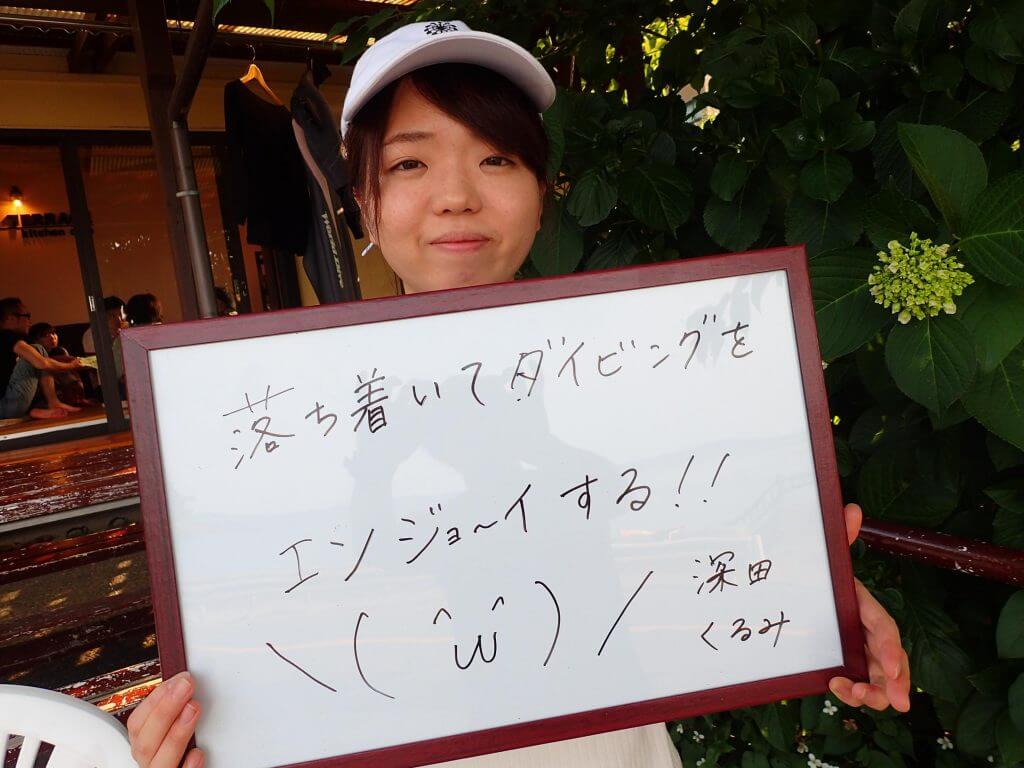 落ち着いてダイビングを
エンジョ〜イする!!
\( ^ω^ )/
深田
くるみ